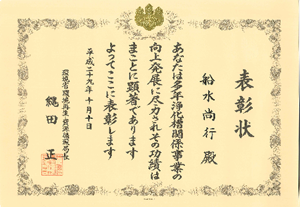 表彰状
船水尚行 殿
あなたは多年浄化槽関係事業の
向上発展に尽力されその功績は
まことに顕著であります
よってここに表彰します
平成二十九年十月十日
環境省環境再生・資源循環局長
縄田 正